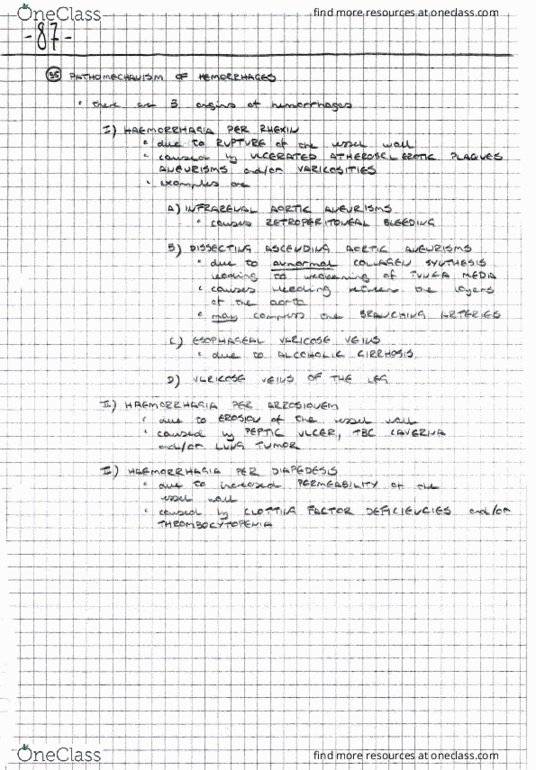 OneClass find more resources at oneclass.com
-87-
35 PATHOMECHANISM OF HEMORRHAGES
• there are 3 origins of hemorrhages
I) HAEMORRHAGIA PER RHEXIN
• due to RUPTURE of the vessel wall
• caused by ULCERATED ATHEROSCLEROTIC PLAQUES
ANEURISMS and/or VARICOSITIES
• examples are
A) INFRARENAL AORTIC ANEURISMS
• causes RETROPERITONEAL BLEEDING
B) DISSECTING ASCENDING AORTIC ANEURISMS
• due to abnormal COLLAGEN SYNTHESIS
leading to weakening of TUNICA MEDIA
• causes bleeding between the layers
of the aorta
• may compress the BRANCHING ARTERIES
C) ESOPHAGEAL VARICOSE VEINS
• due to ALCOHOLIC CIRRHOSIS
D) VARICOSE VEINS OF THE LEG
II) HAEMORRHAGIA PER ARROSIONEM
• due to EROSION of the vessel wall
• caused by PEPTIC ULCER, TBC CAVERNA
and/or LUNG TUMOR
III) HAEMORRHAGIA PER DIAPEDESIS
• due to increased PERMEABILITY of the
vessel wall
• caused by CLOTTING FACTOR DEFICIENCIES and/or
THROMBOCYTOPENIA
OneClass find more resources at oneclass.com